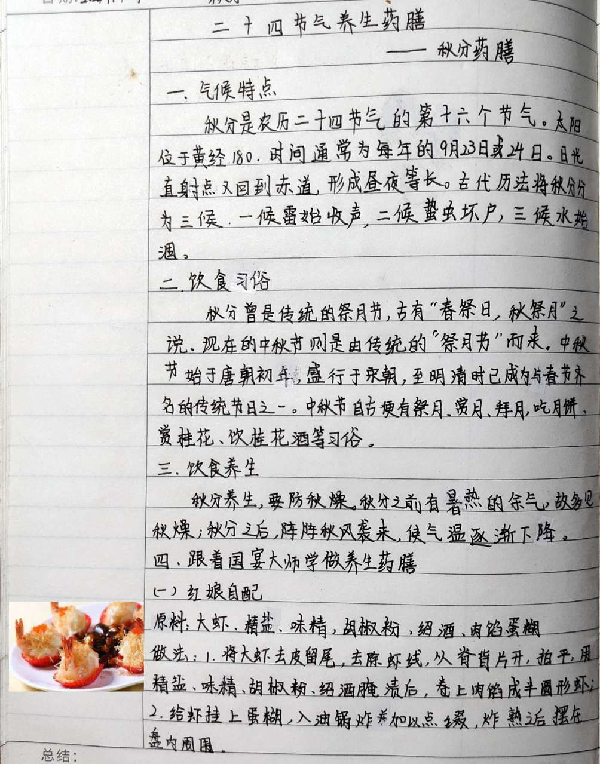 二十四节气养生药膳
——秋分药膳
一.气候特点
秋分是农历二十四节气的第十六个节气。太阳
位于黄经180.时间通常为每年的9月23日或24日。日光
直射点又回到赤道,形成昼夜等长。古代历法将秋分分
为三候.一候雷始收声,二候蛰虫坏户,三候水始
涸。
二.饮食习俗
秋分曾是传统的祭月节,古有“春祭日,秋祭月”之
说.现在的中秋节则是由传统的“祭月节”而来。中秋
节始于唐朝初年,盛行于宋朝,至明清时已成为与春节齐
名的传统节日之一。中秋节自古便有祭月、赏月、拜月、吃月饼、
赏桂花、饮桂花酒等习俗。
三.饮食养生
秋分养生,要防秋燥。秋分之前有暑热的余气,故多见
秋燥;秋分之后,阵阵秋风袭来,使气温逐渐下降。
四.跟着国宴大师学做养生药膳
(一)红娘自配
原料:大虾.精盐.味精,胡椒粉,绍酒.肉馅蛋糊
做法:1.将大虾去皮留尾,去除虾线,从脊背片开,拍平,用
精盐.味精.胡椒粉.绍酒腌渍后,卷上肉馅成半圆形虾
2.给虾挂上蛋糊,入油锅炸并加以点缀,炸熟之后摆在
盘内周围。
总结: